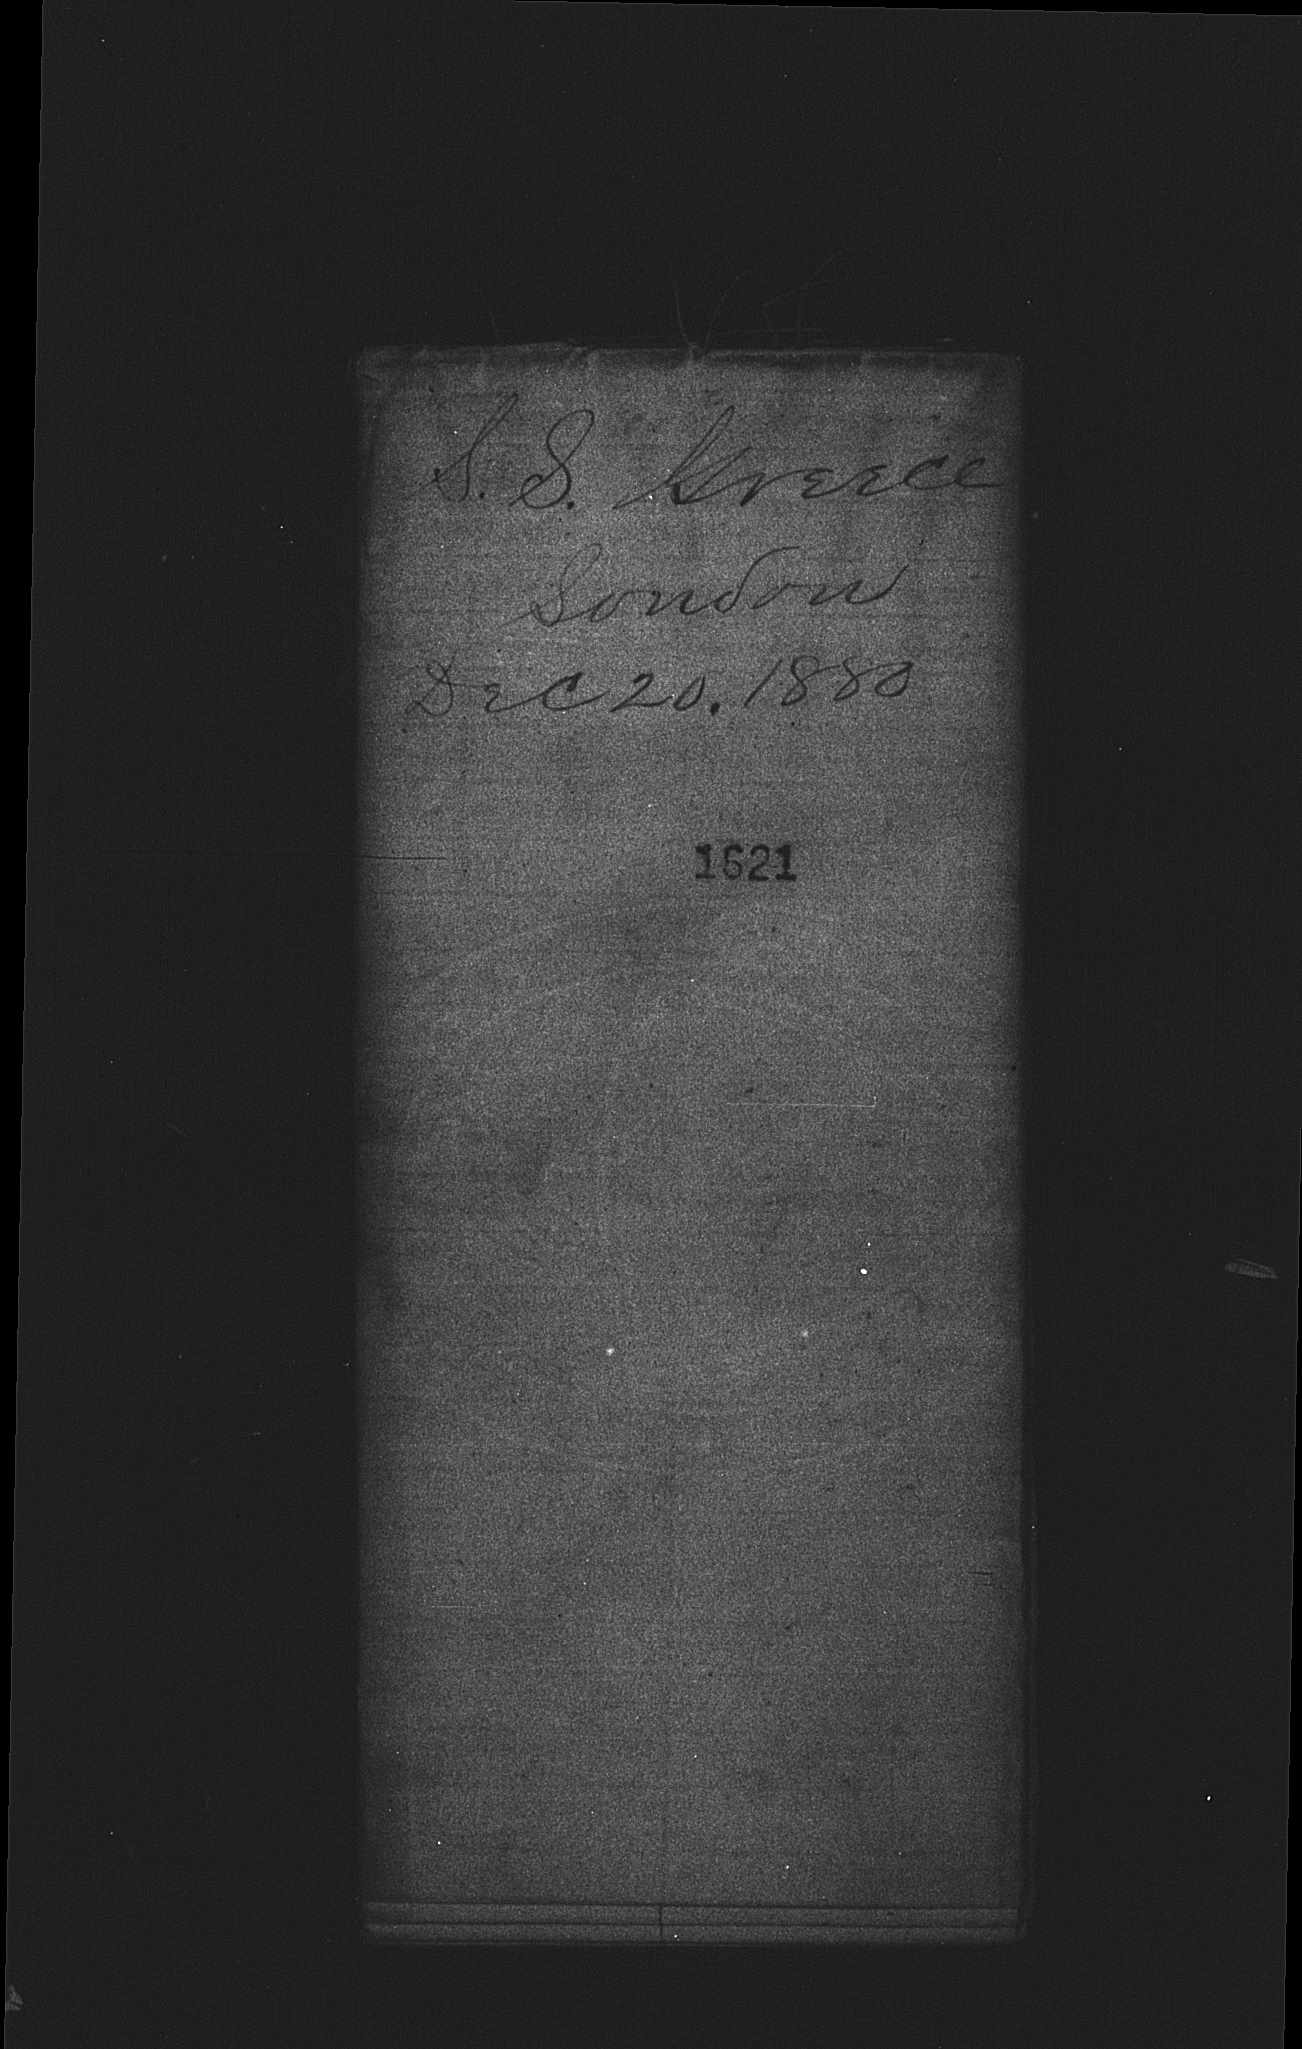 S. S. Greece
London
Dec 20. 1880
1621